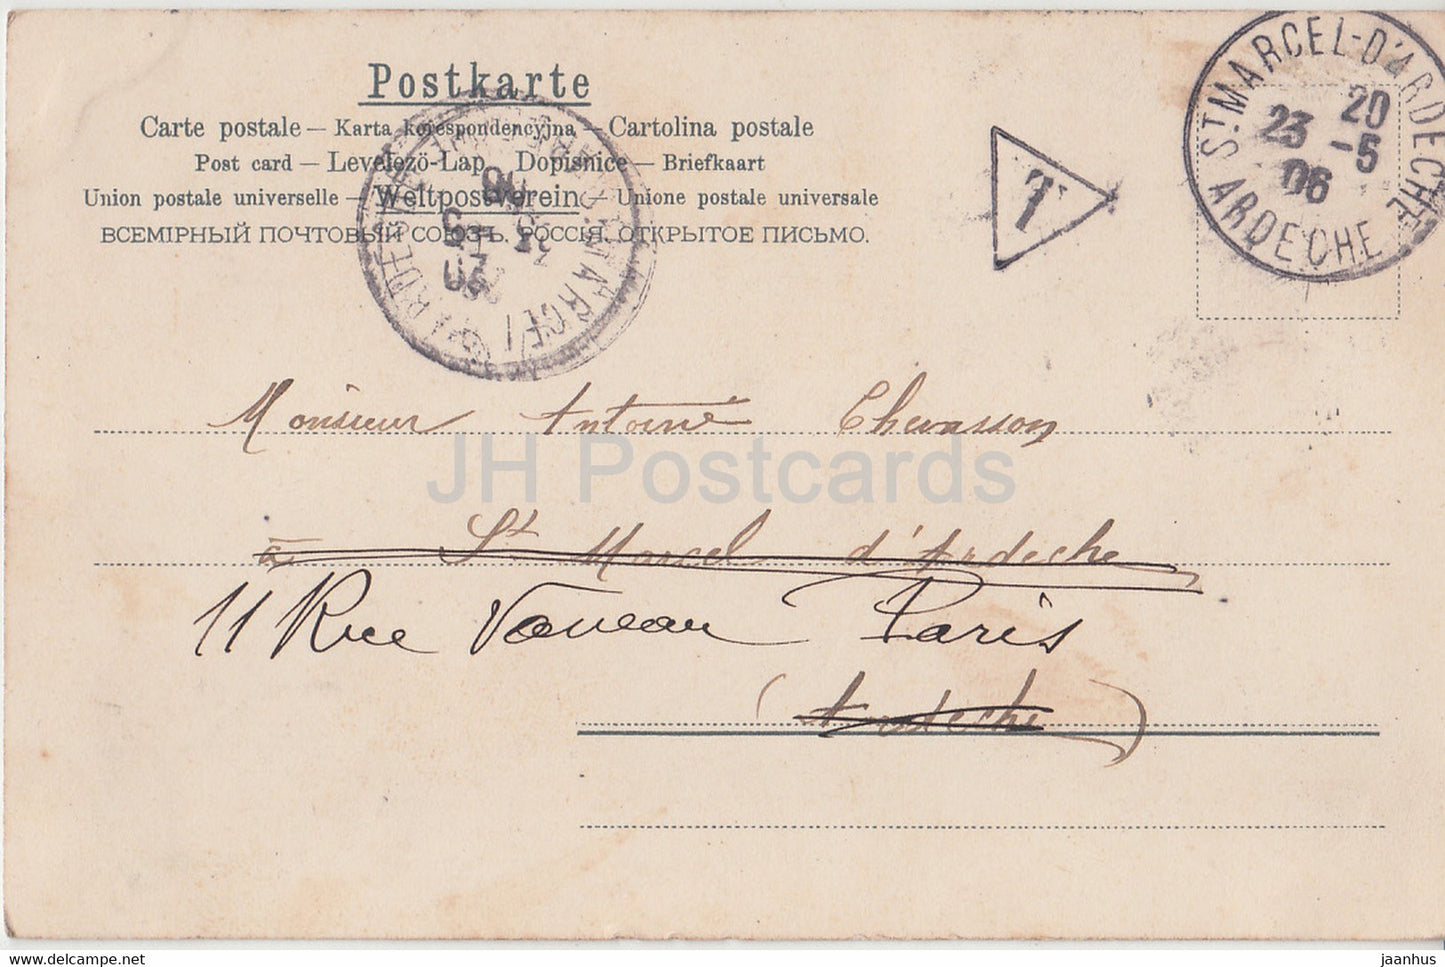 Postkarte
Carte postale — Karta korespondencyjna — Cartolina postale
Post card — Levelező-Lap — Dopisnice — Briefkaart
Union postale universelle — Weltpostverein — Unione postale universale
ВСЕМІРНЫЙ ПОЧТОВЫЙ СОЮЗЪ. РОССІЯ. ОТКРЫТОЕ ПИСЬМО.
ST MARCEL-D'ARDECHE
20
23 -5
06
ARDECHE
T
Monsieur Antoine Chevasson
JH Postcards
à St Marcel d'Ardèche
11 Rue Vaneau Paris
(Ardèche)
hippostcard.com
jaanhus